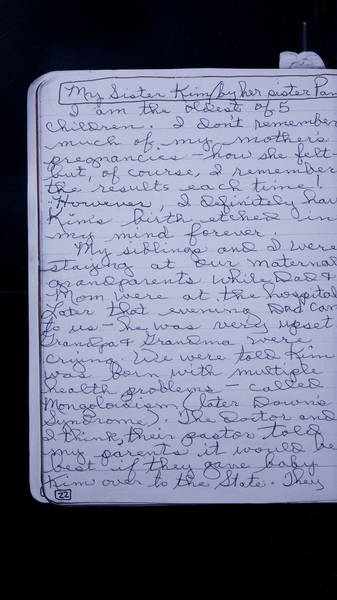 My Sister Kim/by her sister Pam
I am the oldest of 5
children. I don't remember
much of my mother's
pregnancies - how she felt -
but, of course, I remember
the results each time!
However, I definitely hav
Kim's birth etched in
my mind forever.
My siblings and I were
staying at our maternal
grandparents while Dad &
Mom were at the hospital
Later that evening Dad cam
to us - he was very upset
Grandpa & Grandma were
crying. We were told Kim
was born with multiple
health problems - called
Mongoloidism (later Down's
Syndrome). The doctor and
I think, their pastor told
my parents it would be
best if they gave baby
Kim over to the State. They
22